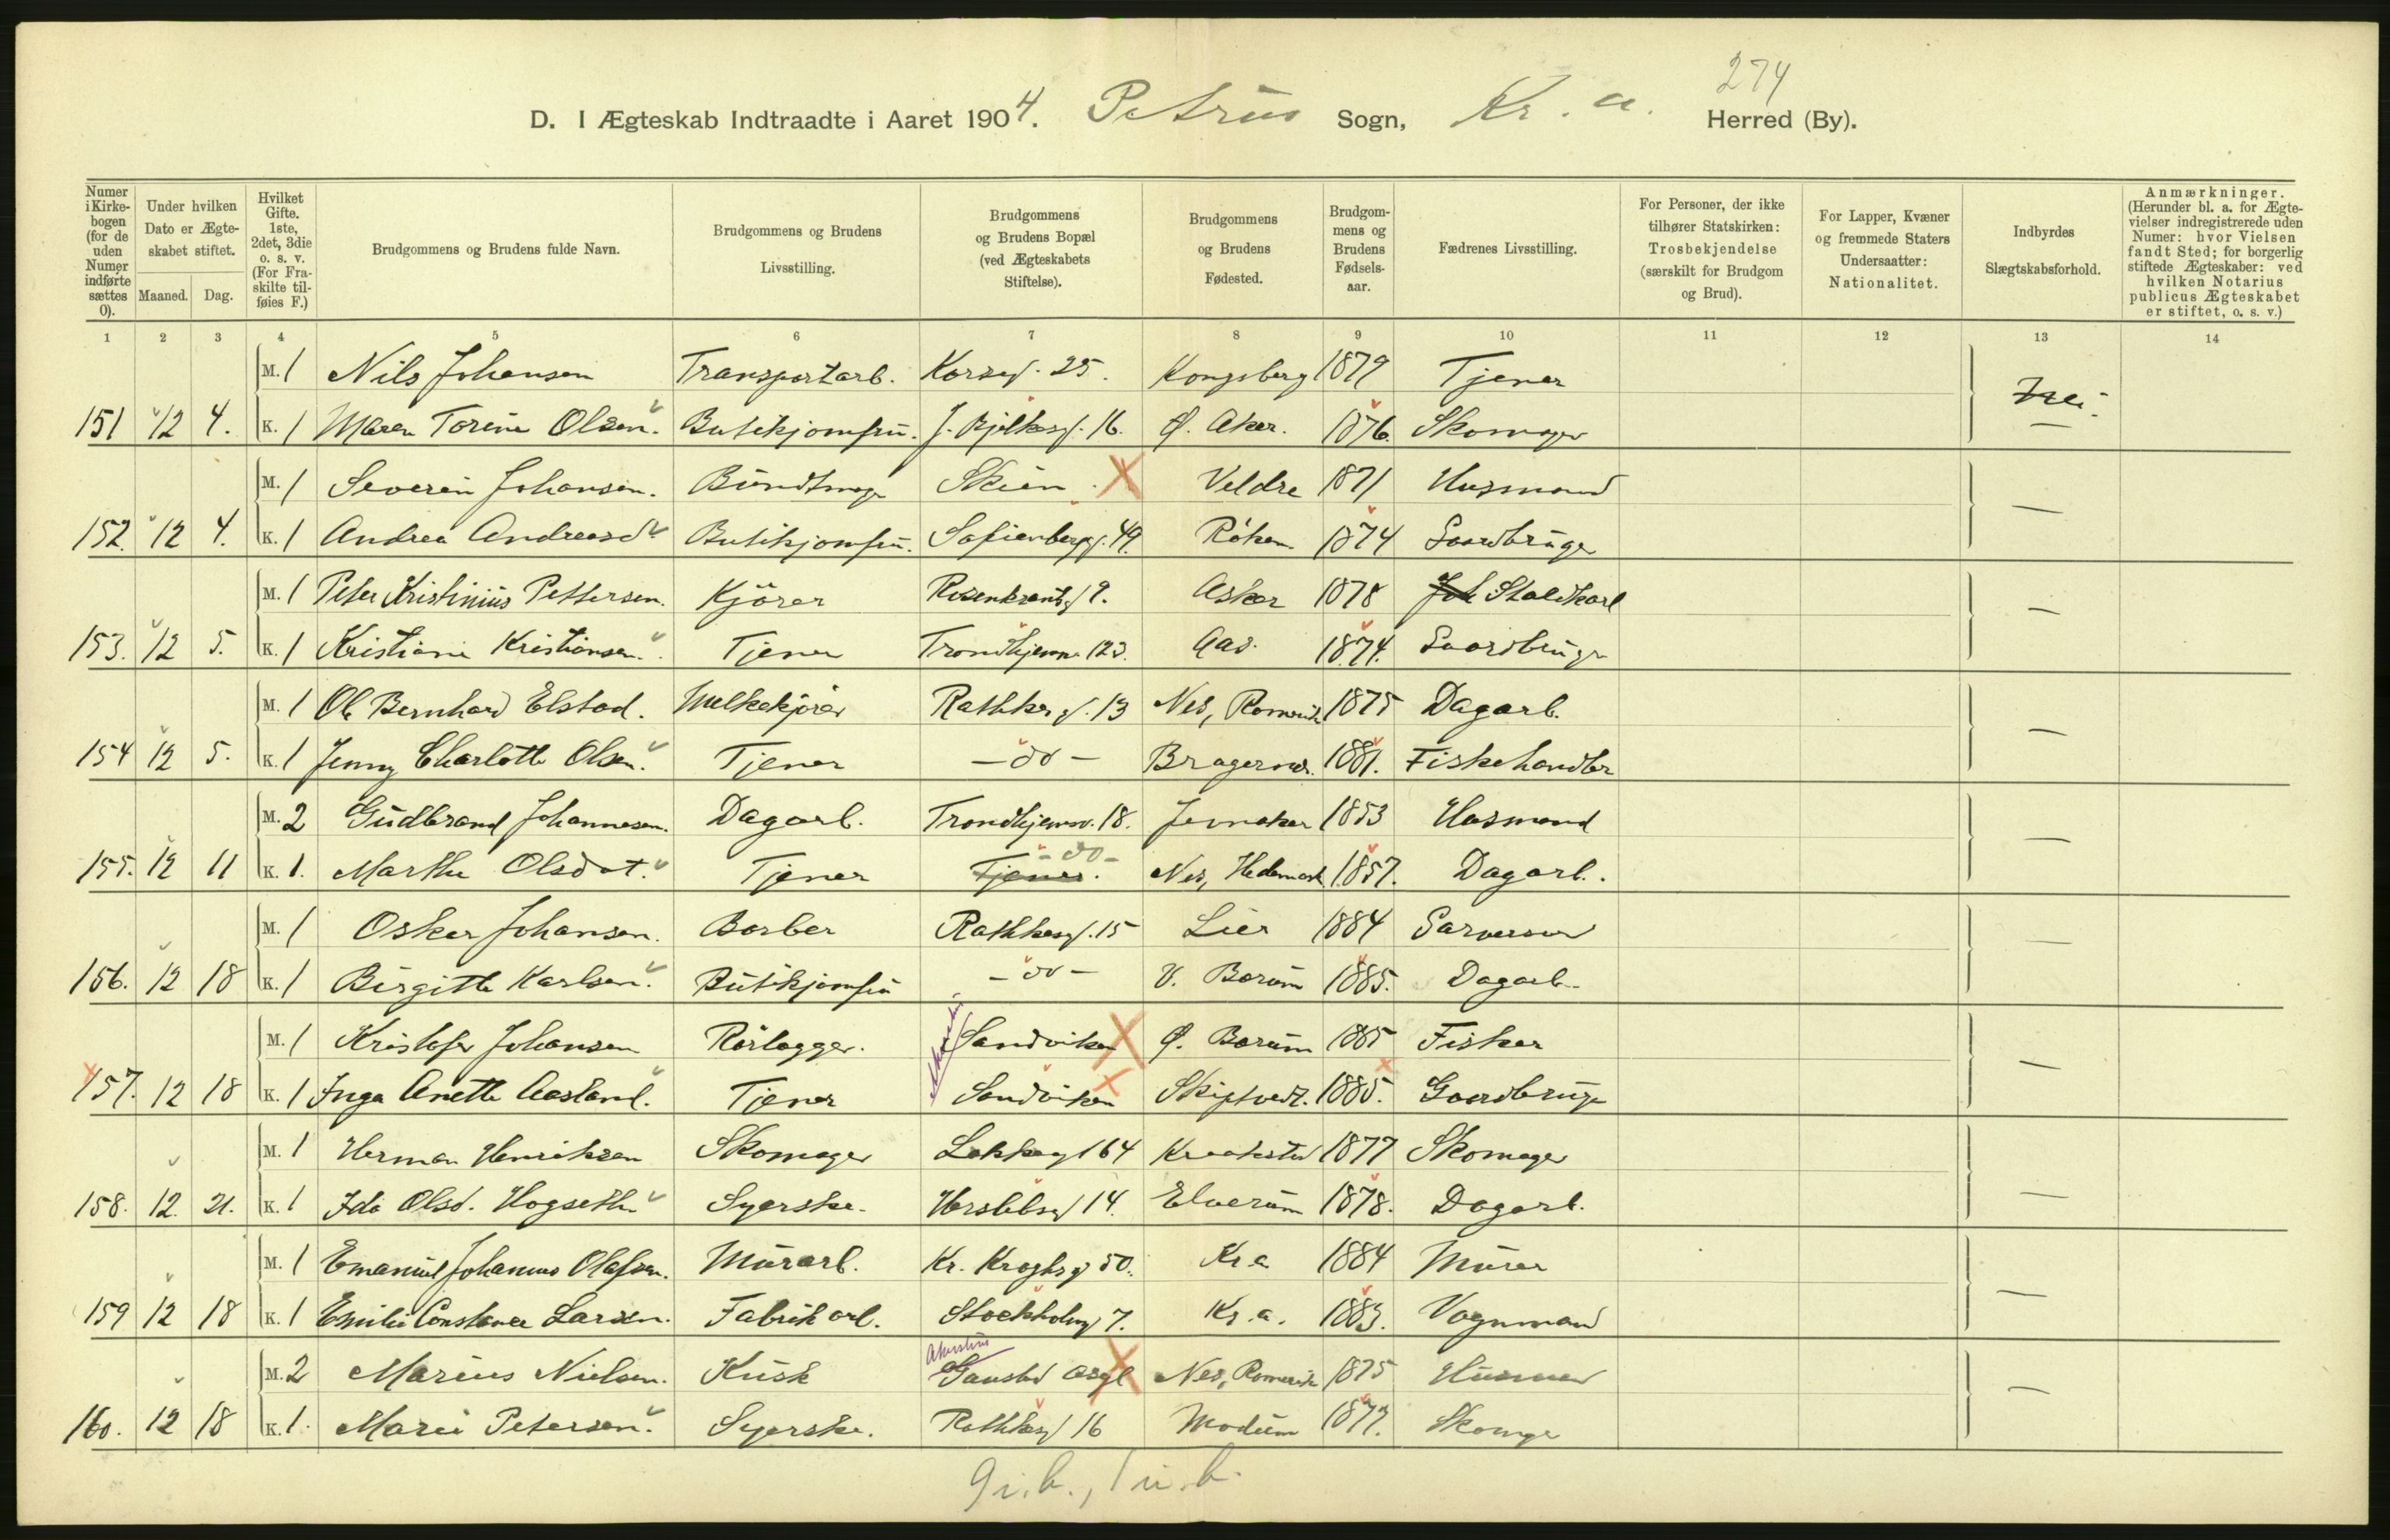 274
D. I Ægteskab Indtraadte i Aaret 1904. Petrus Sogn, Kr. a. Herred (By).
Numer i Kirkebogen (for de uden Numer indførte sættes 0).
Under hvilken Dato er Ægteskabet stiftet.
Maaned. Dag.
Hvilket Gifte. 1ste, 2det, 3die o. s. v. (For Fraskilte tilføies F.)
Brudgommens og Brudens fulde Navn.
Brudgommens og Brudens Livsstilling.
Brudgommens og Brudens Bopæl (ved Ægteskabets Stiftelse).
Brudgommens og Brudens Fødested.
Brudgommens og Brudens Fødselsaar.
Fædrenes Livsstilling.
For Personer, der ikke tilhører Statskirken: Trosbekjendelse (særskilt for Brudgom og Brud).
For Lapper, Kvæner og fremmede Staters Undersaatter: Nationalitet.
Indbyrdes Slægtskabsforhold.
Anmærkninger. (Herunder bl. a. for Ægtevielser indregistrerede uden Numer: hvor Vielsen fandt Sted; for borgerlig stiftede Ægteskaber: ved hvilken Notarius publicus Ægteskabet er stiftet, o. s. v.)
1 2 3 4 5 6 7 8 9 10 11 12 13 14
M. 1 Nils Johansen Transportarb. Korsg. 25. Kongsberg 1879 Tjener
151 12 4. K. 1 Maren Torine Olsen. Butikjomfru. J. Bjelkesg. 16. Ø. Aker. 1876. Skomager Nei.
M. 1 Severin Johansen. Bundtmager Skien Veldre 1871 Husmand
152. 12 4. K. 1 Andrea Andreasd. Butikjomfru. Sofienbergg. 49. Röken 1874 Gaardbruger —
M. 1 Peter Kristinius Pettersen. Kjörer Rosenkrantzg 9. Asker 1878 Staldkarl
153. 12 5. K. 1 Kristiane Kristiansen. Tjener Trondhjemsv. 123. Aas. 1874. Gaardbruger —
M. 1 Ole Bernhard Elstad. Melkekjörer Rathkes g. 13 Nes, Romerike 1875 Dagarb.
154 12 5. K. 1 Jenny Charlotte Olsen. Tjener – do – Bragernes. 1881. Fiskehandler —
M. 2 Gudbrand Johannesen. Dagarb. Trondhjemsv. 18. Jevnaker 1853 Husmand
155. 12 11 K. 1. Marthe Olsdat. Tjener Tjener. – do – Nes, Hedemark 1857. Dagarb. —
M. 1 Oskar Johansen. Barber Rathkesg. 15 Lier 1884 Garversvend
156. 12 18 K. 1 Birgitte Karlsen. Butikjomfru – do – V. Bærum 1885. Dagarb. —
M. 1 Kristofer Johansen Rörlægger. Sandviken Ø. Bærum 1885 Fisker
157. 12 18 K. 1 Inga Anette Aasland. Tjener Sandviken Skiptvedt. 1885. Gaardbruger —
M. 1 Herman Henriksen Skomager Lakkeg 164 Kraakstad 1877 Skomager
158. 12. 21. K. 1 Ida Olsd. Hogseth Syerske. Herslebsg 14. Elverum 1878. Dagarb. —
M. 1 Emanuel Johannes Olafsen. Murarb. Kr. Kroghsg 50. Kr a 1884 Murer
159 12 18 K. 1 Emilie Constance Larsen. Fabrikarb. Stockholmg 7. Kr. a. 1883. Vognmand —
M. 2 Marius Nielsen. Kusk Gaustad asyl Nes, Romerike 1875 Husmand
160. 12 18 K. 1. Marie Petersen. Syerske. Rathkesg 16 Modum 1877. Skomager —
9 i. b., 1 u. b.